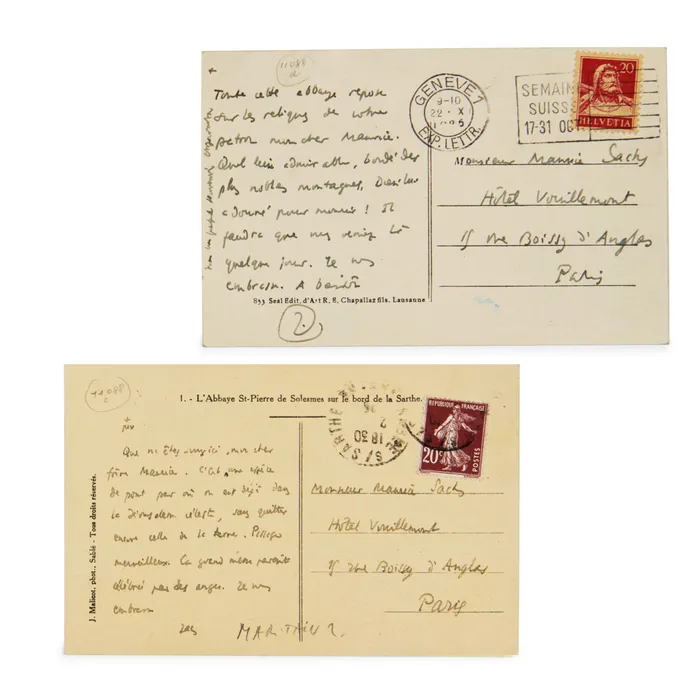 11088
GENEVE 1
9-10
22. X
EXP. LETTR.
SEMAIN
SUISS
17-31 OCT
20
HELVETIA
Toute cette abbaye repose
sur les reliques de votre
patron mon cher Maurice.
Quel lieu admirable, bordé des
plus nobles montagnes,
pour mourir ! Il
faudra que vous veniez là
quelque jour. Je vous
embrasse. A bientôt
Monsieur Maurice Sachs
Hôtel Vouillemont
15 rue Boissy d'Anglas
Paris
853 Seal Edit. d'Art R. E. Chapallaz fils. Lausanne
2
11088
1. - L'Abbaye St-Pierre de Solesmes sur le bord de la Sarthe.
SARTHE
18 30
REPUBLIQUE FRANÇAISE
20c
POSTES
J. Malicot, phot., Sablé - Tous droits réservés.
Que n'êtes-vous ici, mon cher
frère Maurice. C'est une espèce
de pont par où on est déjà dans
la Jérusalem céleste, sans quitter
encore celle de la terre.
merveilleux. La grand messe paraît
célébrée par des anges. Je vous
embrasse
Monsieur Maurice Sachs
Hôtel Vouillemont
15 rue Boissy d'Anglas
Paris